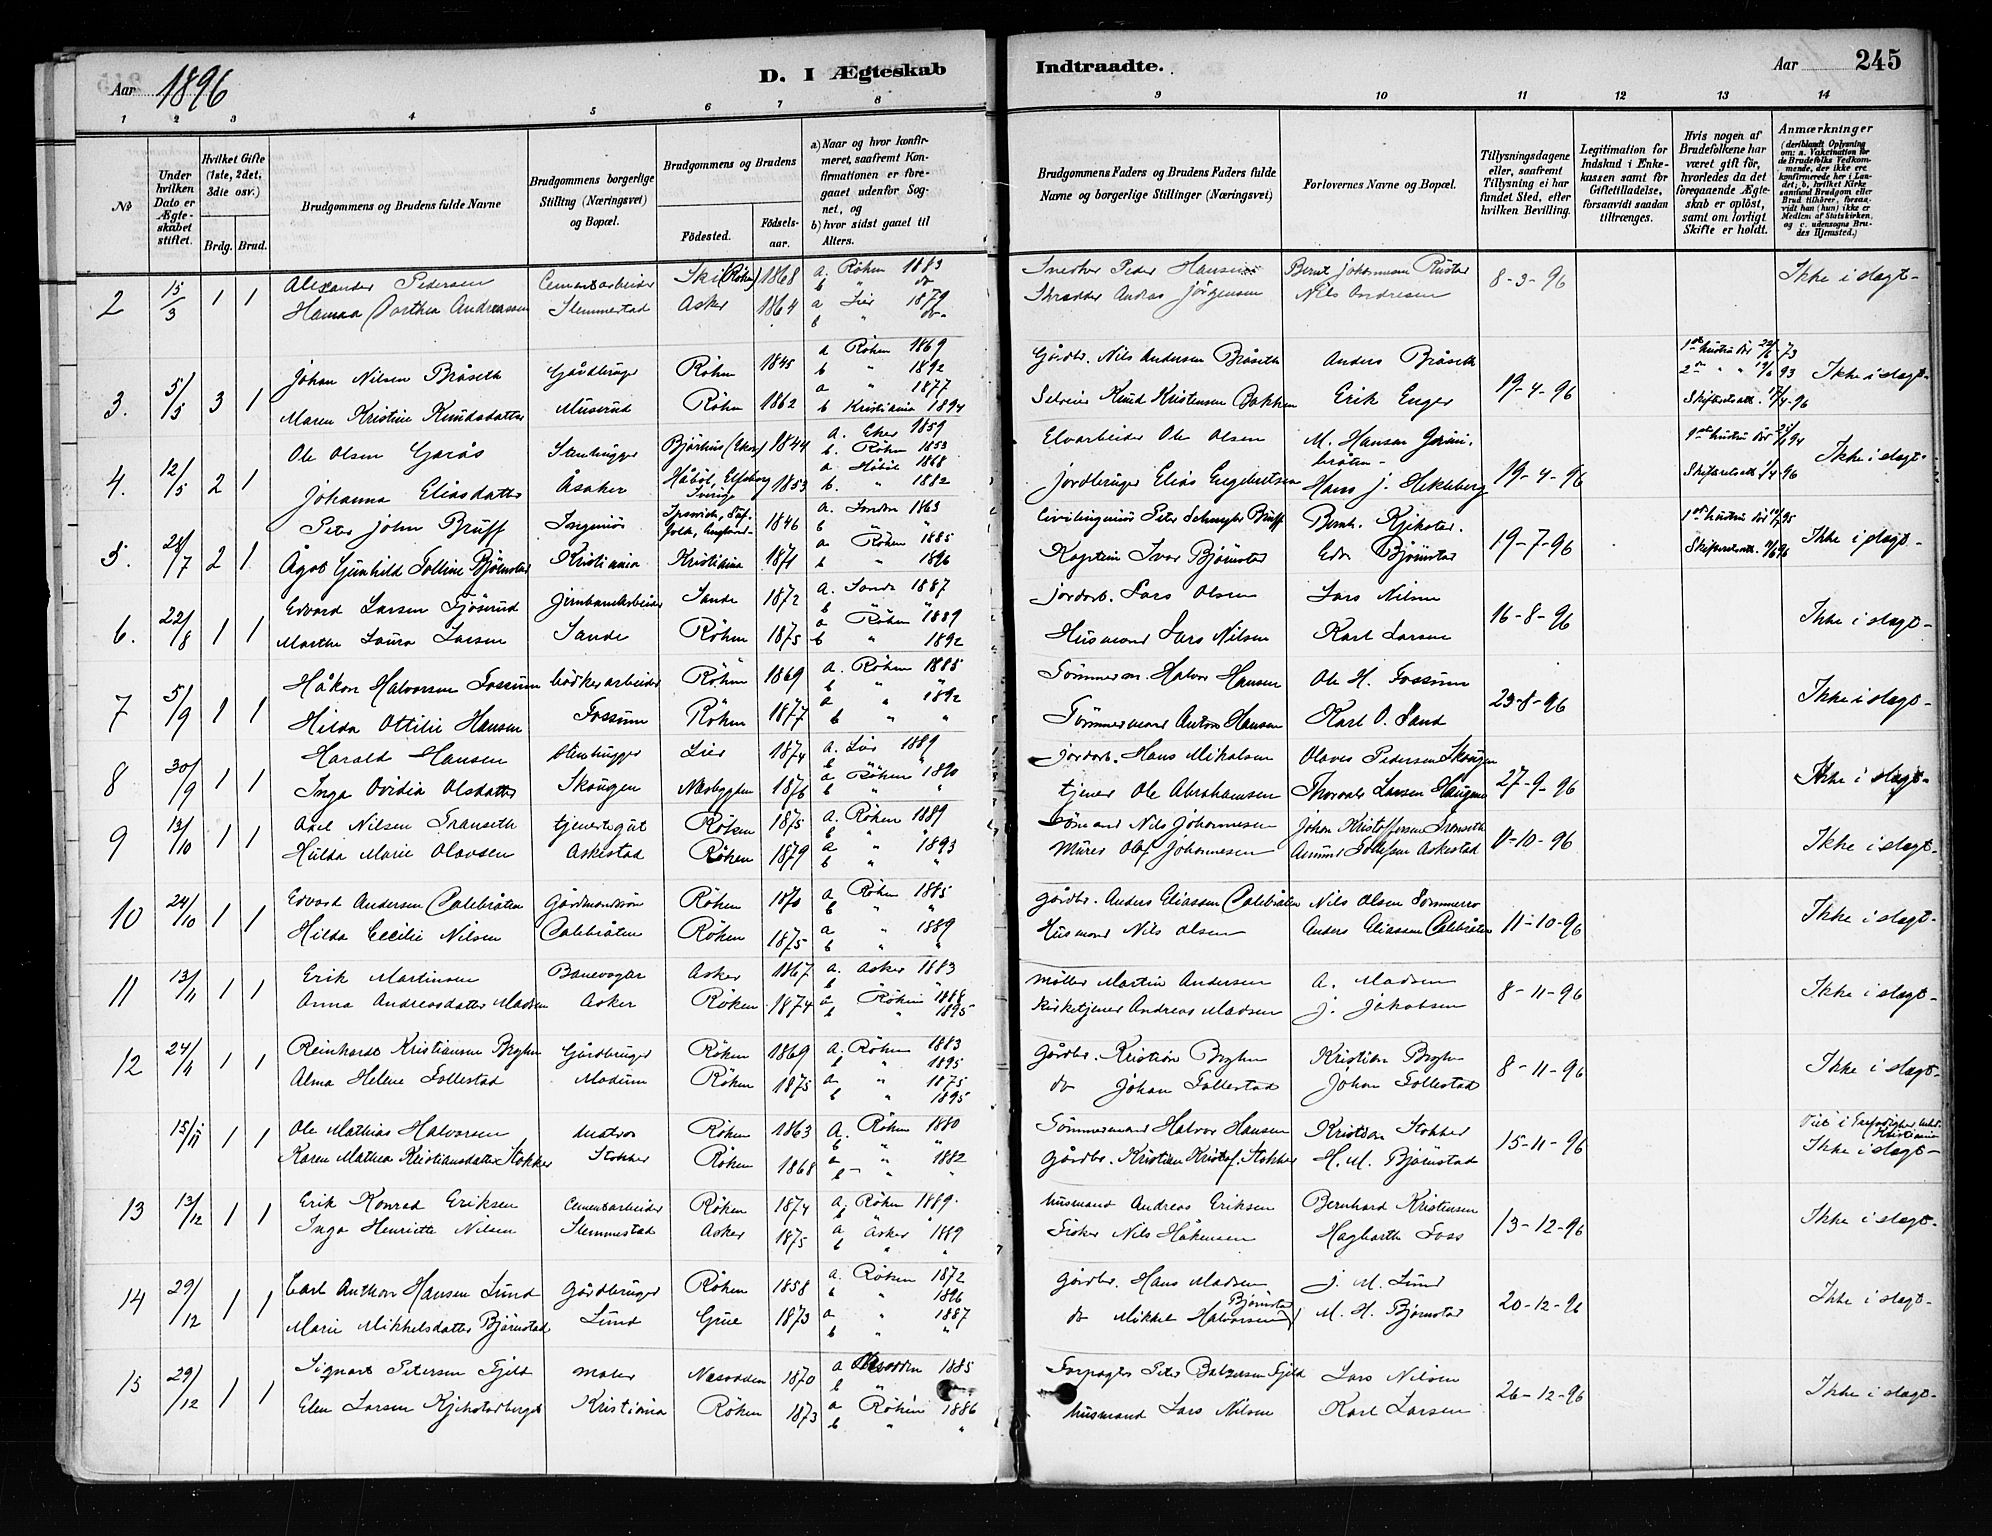 Aar 1896
D. I Ægteskab
Indtraadte.
Aar 245
1 2 3 4 5 6 7 8 9 10 11 12 13 14
No
Under hvilken Dato er Ægteskabet stiftet.
Hvilket Gifte (1ste, 2det, 3die osv.)
Brdg. Brud.
Brudgommens og Brudens fulde Navne
Brudgommens borgerlige Stilling (Næringsvei) og Bopæl.
Brudgommens og Brudens
Fødested. Fødselsaar.
a) Naar og hvor konfirmeret, saafremt Konfirmationen er foregaaet udenfor Sognet, og
b) hvor sidst gaaet til Alters.
Brudgommens Faders og Brudens Faders fulde Navne og borgerlige Stillinger (Næringsvei)
Forlovernes Navne og Bopæl.
Tillysningsdagene eller, saafremt Tillysning ei har fundet Sted, efter hvilken Bevilling.
Legitimation for Indskud i Enkekassen samt for Giftetilladelse, forsaavidt saadan tiltrænges.
Hvis nogen af Brudefolkene har været gift før, hvorledes da det foregaaende Ægteskab er opløst, samt om lovligt Skifte er holdt.
Anmærkninger (deriblandt Oplysning om: a. Vakcination for de Brudefolks Vedkommende, der ikke ere konfirmerede her i Landet; b. hvilket Kirkesamfund Brudgom eller Brud tilhører, forsaavidt han (hun) ikke er Medlem af Statskirken, og c. udensogns Brudes Hjemsted.)
2 15/3 1 1 Alexander Pedersen Cementarbeider Ski (Røken) 1868 a. Røken 1883 b " do Snedker Peder Hansen Bernt Johannesen Rustad 8-3-96 Ikke i slægt-
Hanna Dorthea Andreassen Slemmestad Asker 1864 a Lier 1879 b " do- Skrædder Andras Jörgensen Nils Andresen
3. 5/5 3 1 Johan Nilsen Bråseth Gårdbruger Röken 1845 a Röken 1869 b " 1892 Gårdbr. Nils Andersen Bråseth Anders Bråseth 19-4-96 1ste hustru død 22/6 73 2den " " 19/6 93 Ikke i slægt-
Maren Kristine Knudsdatter Musrud Röken 1862 a " 1877 b Kristiania 1894 Selveier Knud Kristensen Bakken Erik Enger Skifteretsatt. 17/4-96
4. 12/5 2 1 Ole Olsen Garås Stenhugger 1844 a. Eker 1859 b. Röken 1853 Elvarbeider Ole Olsen M. Hansen Grinibråten- 19-4-96 Ikke i slægt-
Johanna Eliasdatter Åsaker Håböl, Elfsborg Sverige 1853 a Håböl 1868 b. " 1882 Jordbruger Elias Engebretsen Hans J. Hekleberg Skifteretsatt. 1/4-96
5. 28/7 2 1 Peter John Bruff Ingeniör Ipsvich, Suffolk, England- 1846 a. London 1863 b " " Civilingeniör Peter Schuyler Bruff Bernh. Kjikstad. 19-7-96 1ste hustru död Ikke i slægt-
Ågot Gunhild Tolline Björnstad Kristiania Kristiania 1871 a Röken 1885 b " 1896 Kaptein Ivar Björnstad Edv. Björnstad Skifteretsatt.
6. 22/8 1 1 Edvard Larsen Fjöserud Jernbanearbeider Sande 1872 a. Sande 1887 b " " Jordarb. Lars Olsen Lars Nilsen 16-8-96 Ikke i slægt-
Marthe Laura Larsen Sande Röken 1875 a Röken 1889 b " 1892 Husmand Lars Nilsen Karl Larsen
7 5/9 1 1 Håkon Halvorsen Fossum bödkerarbeider Röken 1869 a. Röken 1885 b " " Tömmerm. Halvor Hansen Ole H. Fossum 23-8-96 Ikke i slægt-
Hilda Ottilie Hansen Fossum Röken 1877 a " 1892 b " " Tömmermand Anton Hansen Karl O. Sand
8 30/9 1 1 Harald Hansen Stenhugger Lier 1874 a. Lier 1889 b " " Jordarb. Hans Mikalsen Olaves Pedersen Skougen 27-9-96 Ikke i slægt-
Inga Ovidia Olsdatter Skougen Næsbygden 1876 a Röken 1890 b " " tjener Ole Abrahamsen Thorvald Larsen Haugen
9 13/10 1 1 Axel Nilsen Transeth tjenestegut Röken 1875 a. Röken 1889 b " " Sömand Nils Johannesen Johan Kristoffersen Tronseth 11-10-96 Ikke i slægt-
Hulda Marie Olavsen Askestad Röken 1879 a " 1893 b " " Murer Olaf Johannesen Amund Tollefsen Askestad
10 24/10 1 1 Edvard Andersen Dalebråten Gårdmandssön Röken 1870 a Röken 1885 b " " Gårdbr. Anders Eliassen Dalebråten Nils Olsen Sommerro 11-10-96 Ikke i slægt-
Hilda Cecilie Nilsen Dalebråten Röken 1875 a " 1889 b " " Husmand Nils Olsen Anders Eliassen Dalebråten
11 13/11 1 1 Erik Martinsen Banevogter Asker 1867 a. Asker 1883 b " " Möller Martin Andersen A. Madsen 8-11-96 Ikke i slægt-
Anna Andreasdatter Madsen Asker Röken 1874 a Röken 1888 b " 1895 Kirketjener Andreas Madsen J. Jakobsen
12 24/11 1 1 Reinhardt Kristiansen Bryhn Gårdbruger Röken 1869 a. Röken 1883 b " 1895 Gårdbr. Kristian Bryhn Kristian Bryhn 8-11-96 Ikke i slægt-
Alma Helene Follestad Modum Röken 1875 a " 1875 b " 1895 do Johan Follestad Johan Follestad
15/11 1 1 Ole Mathias Halvorsen Röken 1863 a. Röken 1880 b " " Tömmermand Halvor Hansen Kristian Stokker 15-11-96 Viet i Kristiania
Karen Mathea Kristiansdatter Stokker Stokker Röken 1868 a " 1882 b - " " Gårdbr. Kristian Kristof. Stokker H. M. Björnstad Ikke i slægt-
13 13/12 1 1 Erik Konrad Eriksen Cementarbeider Röken 1874 a. Röken 1889. b " " husmand Andreas Eriksen Bernhard Kristensen 13-12-96 Ikke i slægt-
Inga Henriette Nilsen Slemmestad Asker 1875 a Asker 1889 b " " Fisker Nils Håkensen Hagbarth Foss
14 29/12 1 1 Carl Anthon Hansen Lund Gårdbruger Röken 1858 a. Röken 1872 b " 1896 Gårdbr. Hans Madsen J. M. Lund 20-12-96 Ikke i slægt-
Marie Mikkelsdatter Björnstad Lund Grue 1873 a " 1887 b " " do Mikkel Halvorsen Björnstad M. H. Björnstad
15 29/12 1 1 Signart Petersen Fjeld maler Næsodden 1870 a Næsodden 1885 b " " Forpagter Peter Baltzersen Fjeld Lars Nilsen 26-12-96 Ikke i slægt-
Elen Larsen Kjekstadberget Kristiania Röken 1873 a Röken 1886 b " " husmand Lars Nilsen Karl Larsen